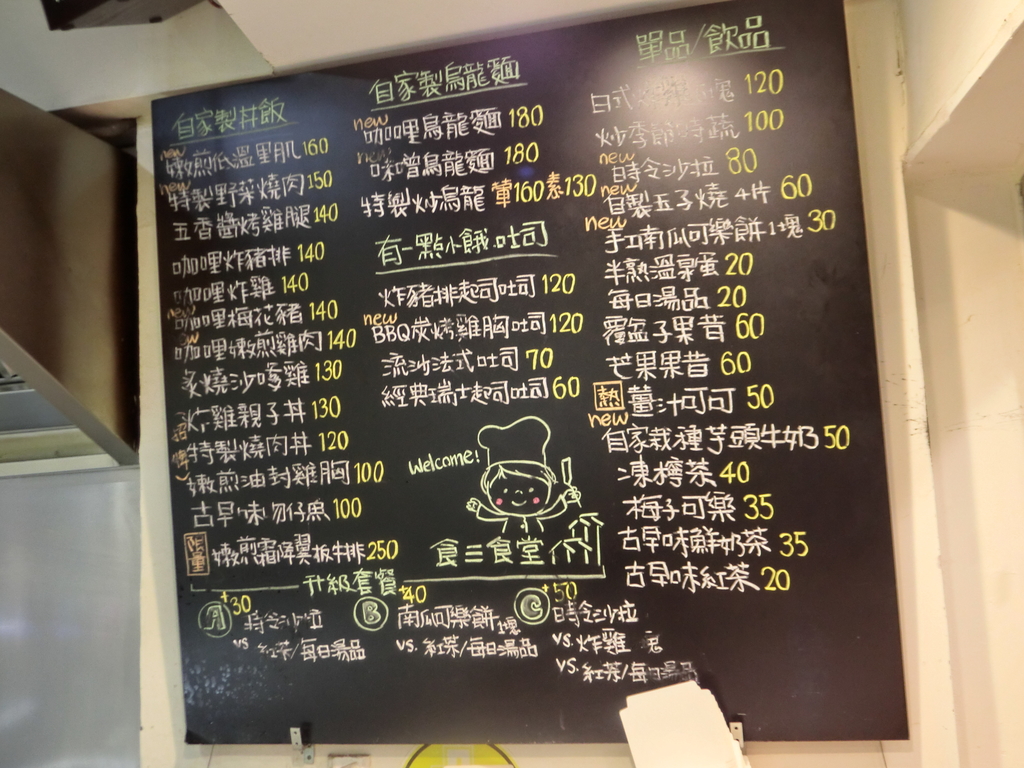 自家製丼飯
new
嫩煎低溫里肌 160
new
特製野菜燒肉 150
五香醬烤雞腿 140
咖哩炸豬排 140
咖哩炸雞 140
new
咖哩梅花豬 140
咖哩嫩煎雞肉 140
炙燒沙嗲雞 130
炸雞親子丼 130
特製燒肉丼 120
嫩煎油封雞胸 100
古早味吻仔魚 100
限量 嫩煎霜降翼板牛排 250
自家製烏龍麵
new
咖哩烏龍麵 180
new
味噌烏龍麵 180
特製炒烏龍 葷160 素130
有一點小餓.吐司
炸豬排起司吐司 120
new
BBQ炭烤雞胸吐司 120
流沙法式吐司 70
經典瑞士起司吐司 60
Welcome!
食三食堂
單品/飲品
日式 塊 120
炒季節時蔬 100
new
時令沙拉 80
new
自製玉子燒 4片 60
new
手工南瓜可樂餅1塊 30
半熟溫泉蛋 20
每日湯品 20
覆盆子果昔 60
芒果果昔 60
熱 薑汁可可 50
new
自家栽種芋頭牛奶 50
凍檸茶 40
梅子可樂 35
古早味鮮奶茶 35
古早味紅茶 20
升級套餐
A +30
時令沙拉
vs 紅茶/每日湯品
B +40
南瓜可樂餅1塊
vs. 紅茶/每日湯品
C +50
時令沙拉
vs. 炸雞
vs. 紅茶/每日湯品